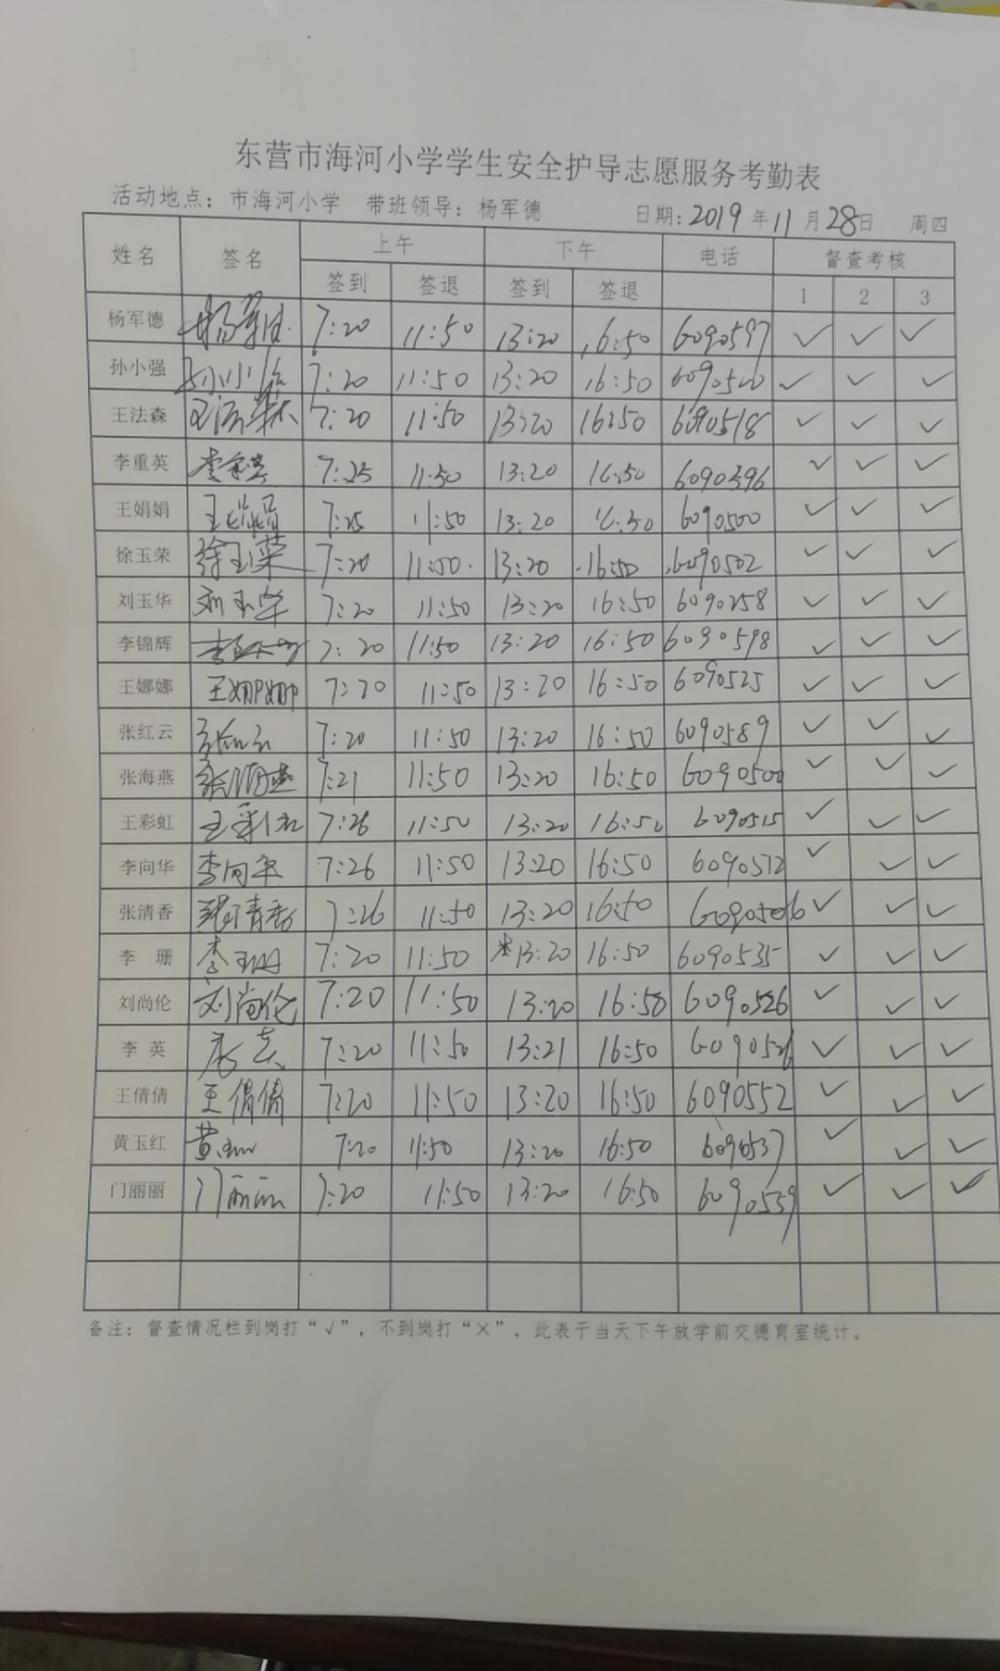 东营市海河小学学生安全护导志愿服务考勤表
活动地点：市海河小学 带班领导：杨军德 日期：2019年11月28日 周四
姓名 签名 上午 下午 电话 督查考核
签到 签退 签到 签退 1 2 3
杨军德 杨军德 7:20 11:50 13:20 16:50 6090597 ✓ ✓ ✓
孙小强 孙小强 7:20 11:50 13:20 16:50 ✓ ✓ ✓
王法森 王法森 7:20 11:50 13:20 16:50 6090518 ✓ ✓ ✓
李重英 李重英 7:25 11:50 13:20 16:50 6090596 ✓ ✓ ✓
王娟娟 王娟娟 7:25 11:50 13:20 16:50 6090500 ✓ ✓ ✓
徐玉荣 徐玉荣 7:20 11:50 13:20 16:50 6090502 ✓ ✓ ✓
刘玉华 刘玉华 7:20 11:50 13:20 16:50 6090258 ✓ ✓ ✓
李锦辉 7:20 11:50 13:20 16:50 6090598 ✓ ✓ ✓
王娜娜 王娜娜 7:20 11:50 13:20 16:50 6090525 ✓ ✓ ✓
张红云 张红云 7:20 11:50 13:20 16:50 6090589 ✓ ✓ ✓
张海燕 张海燕 7:21 11:50 13:20 16:50 6090500 ✓ ✓ ✓
王彩虹 王彩虹 7:26 11:50 13:20 16:50 6090515 ✓ ✓ ✓
李向华 李向华 7:26 11:50 13:20 16:50 6090572 ✓ ✓ ✓
张清香 张清香 7:26 11:50 13:20 16:50 ✓ ✓ ✓
李 珊 李珊 7:20 11:50 13:20 16:50 6090535 ✓ ✓ ✓
刘尚伦 刘尚伦 7:20 11:50 13:20 16:50 6090526 ✓ ✓ ✓
李 英 李英 7:20 11:50 13:21 16:50 6090526 ✓ ✓ ✓
王倩倩 王倩倩 7:20 11:50 13:20 16:50 6090552 ✓ ✓ ✓
黄玉红 黄玉红 7:20 11:50 13:20 16:50 6090537 ✓ ✓ ✓
门丽丽 门丽丽 7:20 11:50 13:20 16:50 6090559 ✓ ✓ ✓
备注：督查情况栏到岗打“√”，不到岗打“×”，此表于当天下午放学前交德育室统计。